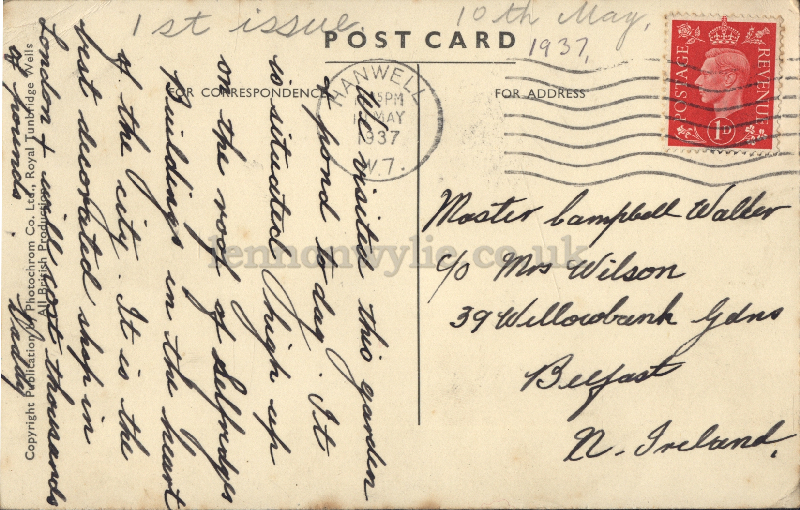 1st issue. 10th May,
1937,
POST CARD
FOR CORRESPONDENCE
FOR ADDRESS
HANWELL
PM
MAY
1937
W.7.
POSTAGE
REVENUE
1D
We visited this garden
& pond to-day. It
is situated high up
on the roof of Selfridges
Buildings in the heart
of the city. It is the
best decorated shop in
London & will cost thousands
of pounds.
Daddy
Master Campbell Waller
c/o Mrs Wilson
39 Willowbank Gdns
Belfast
N. Ireland.
Copyright Publication by Photochrom Co. Ltd., Royal Tunbridge Wells
All British Production
lennonwylie.co.uk